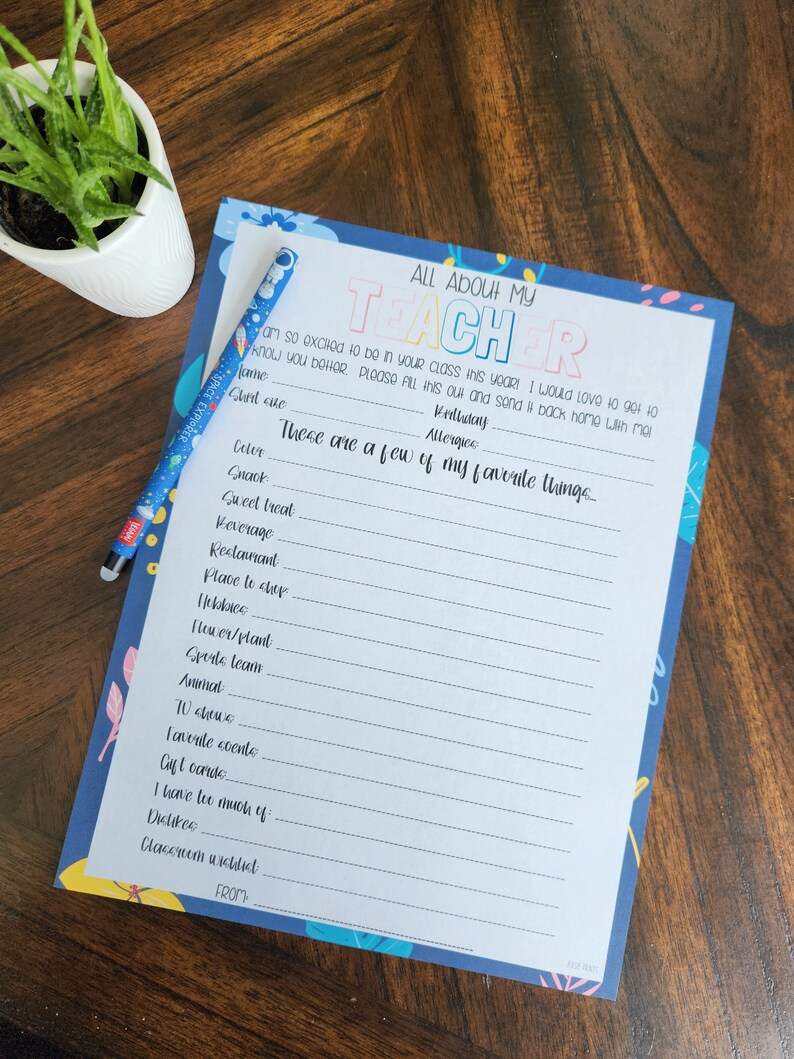 ALL ABOUT MY
TEACHER
I am so excited to be in your class this year! I would love to get to
know you better. Please fill this out and send it back home with me!
Name:
Birthday:
Shirt size:
Allergies:
These are a few of my favorite things...
Color:
Snack:
Sweet treat:
Beverage:
Restaurant:
Place to shop:
Hobbies:
Flower/plant:
Sports team:
Animal:
TV shows:
Favorite scents:
Gift cards:
I have too much of:
Dislikes:
Classroom wishlist:
FROM:
SPACE EXPLORER
legami